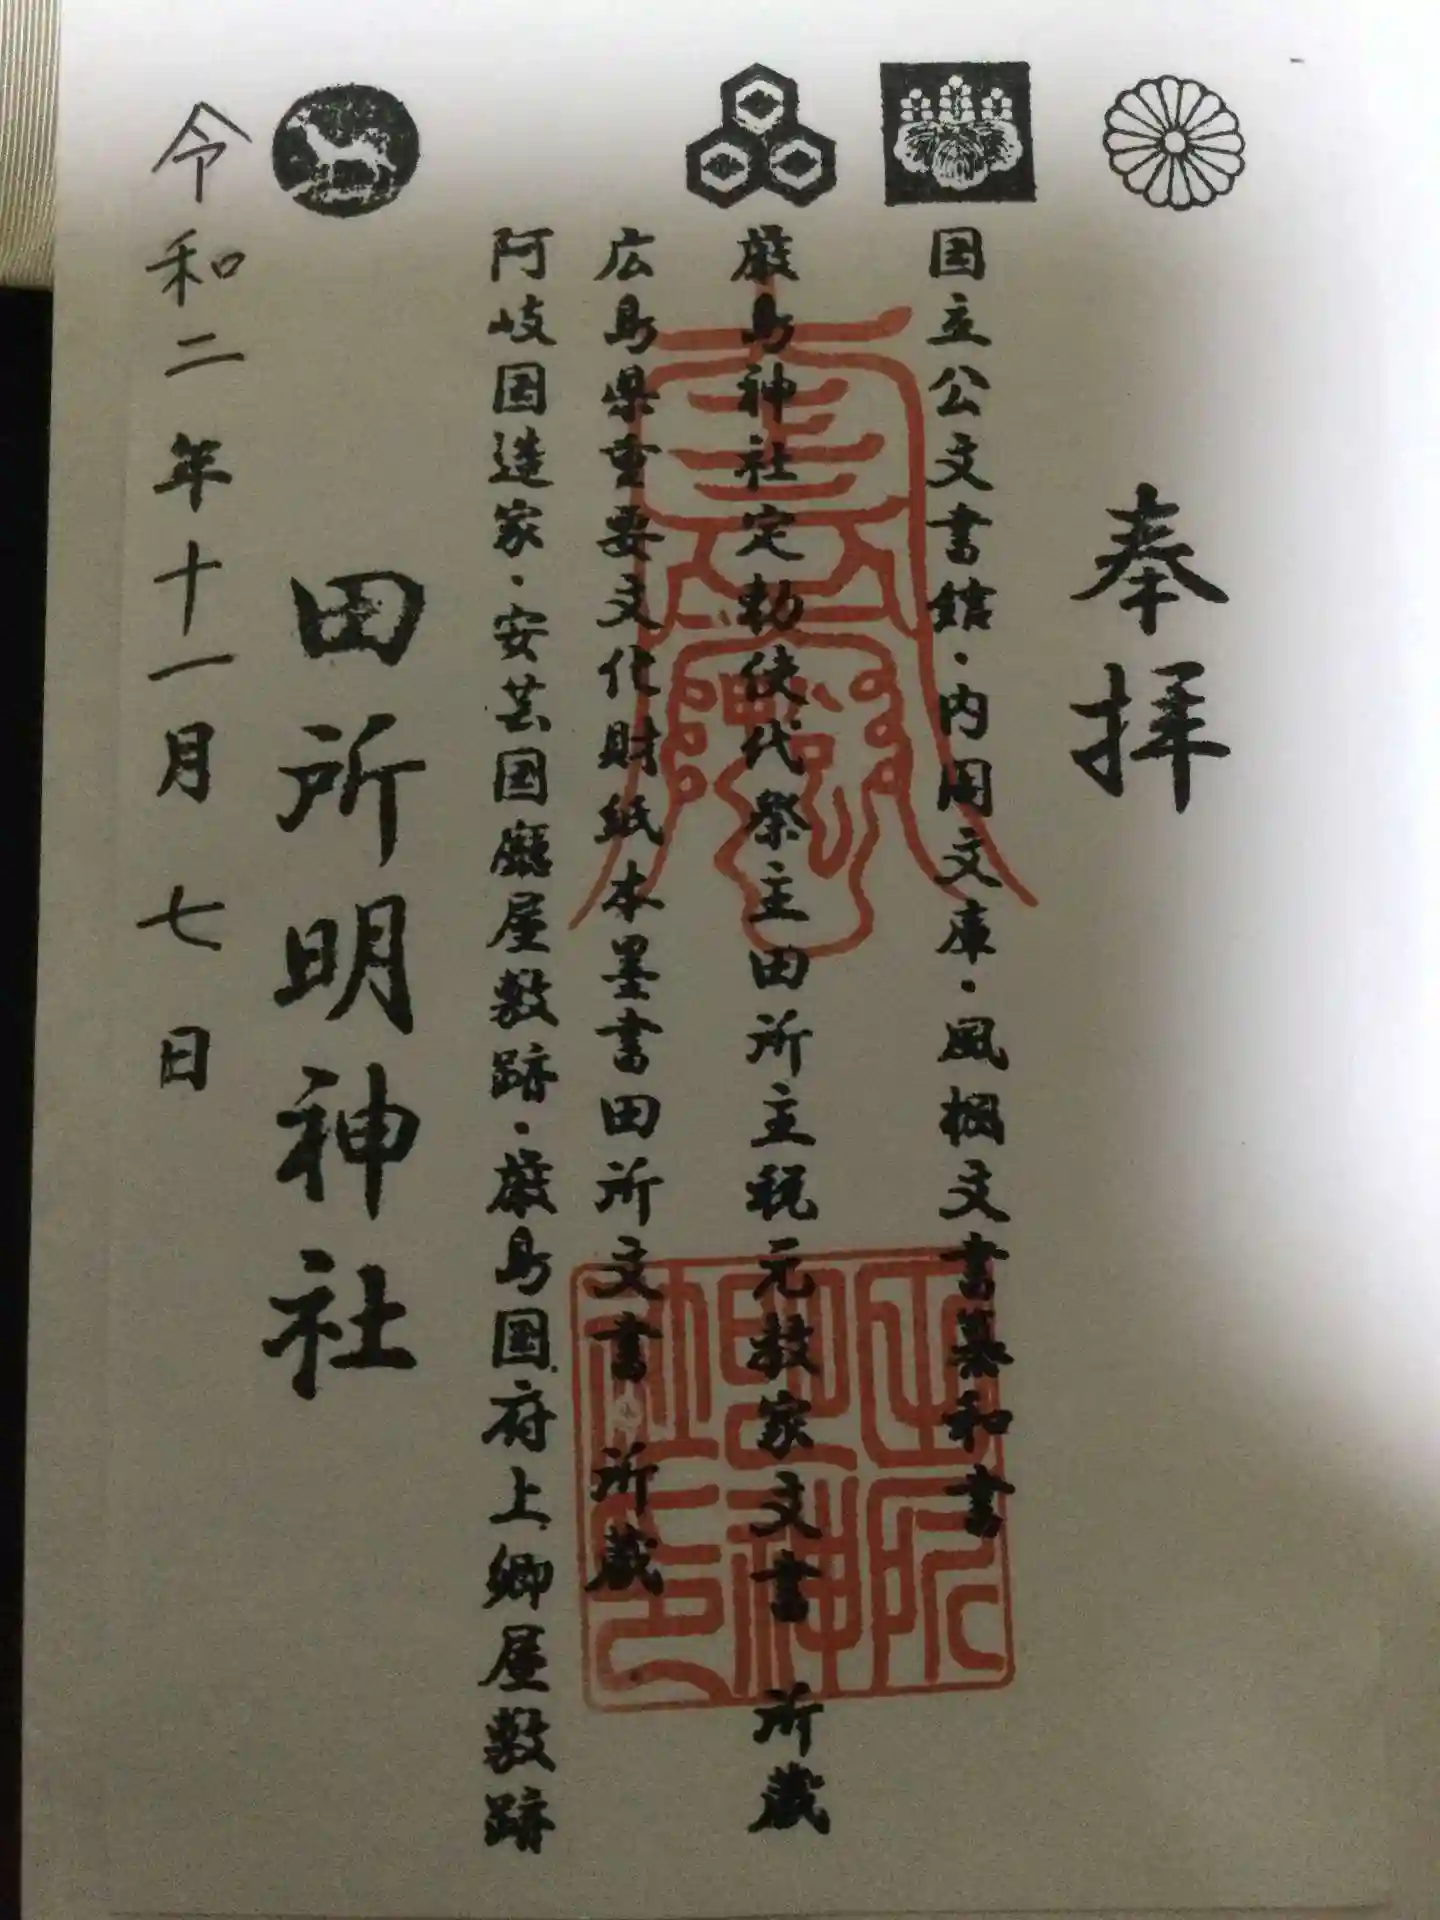 奉拝
国立公文書館・内閣文庫・風桐文書纂和書
厳島神社定勅使代祭主田所主税元教家文書 所蔵
広島県重要文化財紙本墨書田所文書 所蔵
阿岐国造家・安芸国廳屋敷跡・厳島国府上卿屋敷跡
田所明神社
令和二年十一月七日
田所明神社印